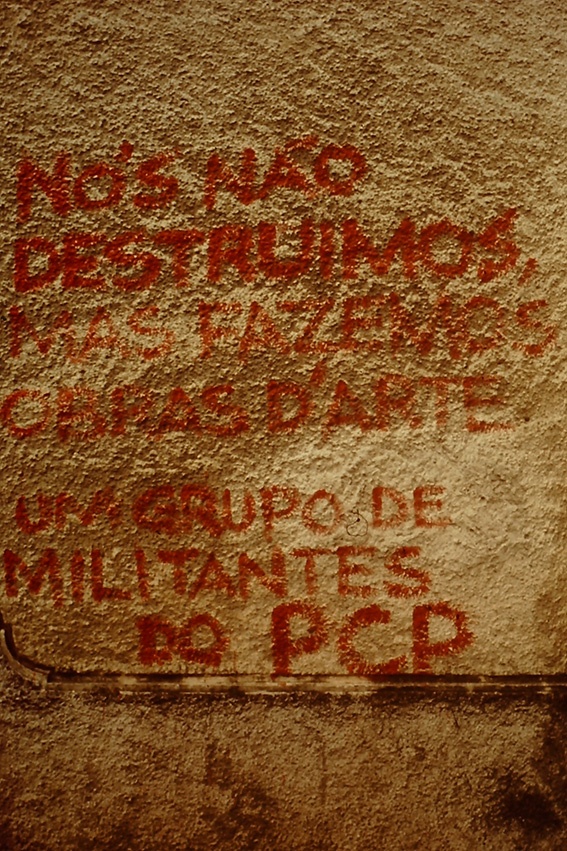 NÓS NÃO
DESTRUIMOS,
MAS FAZEMOS
OBRAS D'ARTE
UM GRUPO DE
MILITANTES
DO PCP